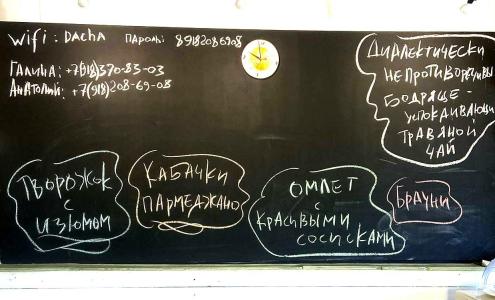 Wifi: DACHA пароль: 89182086908
Галина: +7(918)370-83-03
Анатолий: +7(918)208-69-08
Диалектически
непротиворечивый
бодряще-
успокаивающий
травяной
чай
Творожок
с
изюмом
Кабачки
пармеджано
Омлет
с
красивыми
сосисками
Брауни